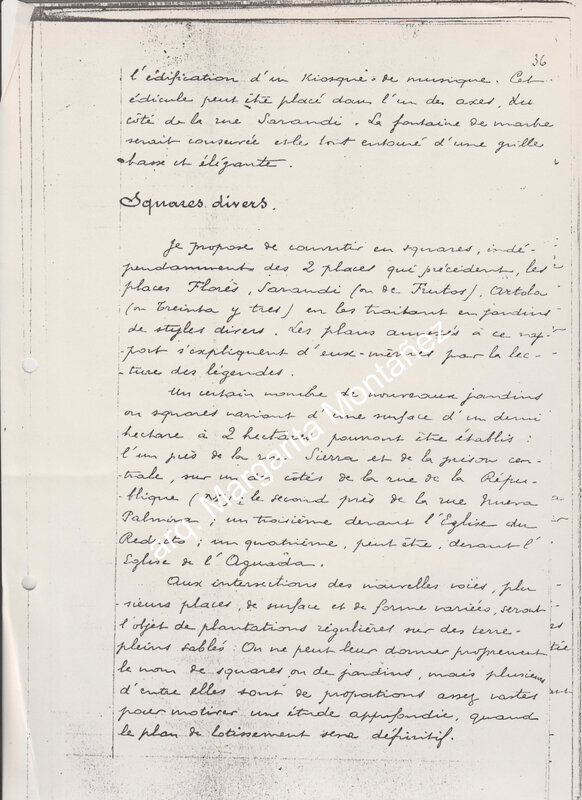 36
l'édification d'un Kiosque de musique. Cet
édicule peut être placé dans l'un des axes, du
côté de la rue Sarandi. La fontaine de marbre
serait conservée et le tout entouré d'une grille
basse et élégante.
Squares divers.
Je propose de convertir en squares, indé-
pendamment des 2 places qui précèdent, les
places Florès, Sarandi (ou de Frutos), Artola
(ou Treinta y tres) en les traitant en jardins
de styles divers. Les plans annexés à ce rap-
-port s'expliquent d'eux-mêmes par la lec-
-ture des légendes.
Un certain nombre de nouveaux jardins
ou squares variant d'une surface d'un demi
hectare à 2 hectares pourront être établis :
l'un près de la rue Sierra et de la prison cen-
trale, sur un des côtés de la rue de la Répu-
-blique ; le second près de la rue Nueva
Palmira ; un troisième devant l'Eglise du
Reducto ; un quatrième, peut être, devant l'
Eglise de l'Aguada.
Aux intersections des nouvelles voies, plu
-sieurs places, de surface et de forme variées, seront
l'objet de plantations régulières sur des terre-
pleins sablés. On ne peut leur donner proprement
le nom de squares ou de jardins, mais plusieurs
d'entre elles sont de proportions assez vastes
pour motiver une étude approfondie, quand
le plan de lotissement sera définitif.
arq. Margarita Montañez